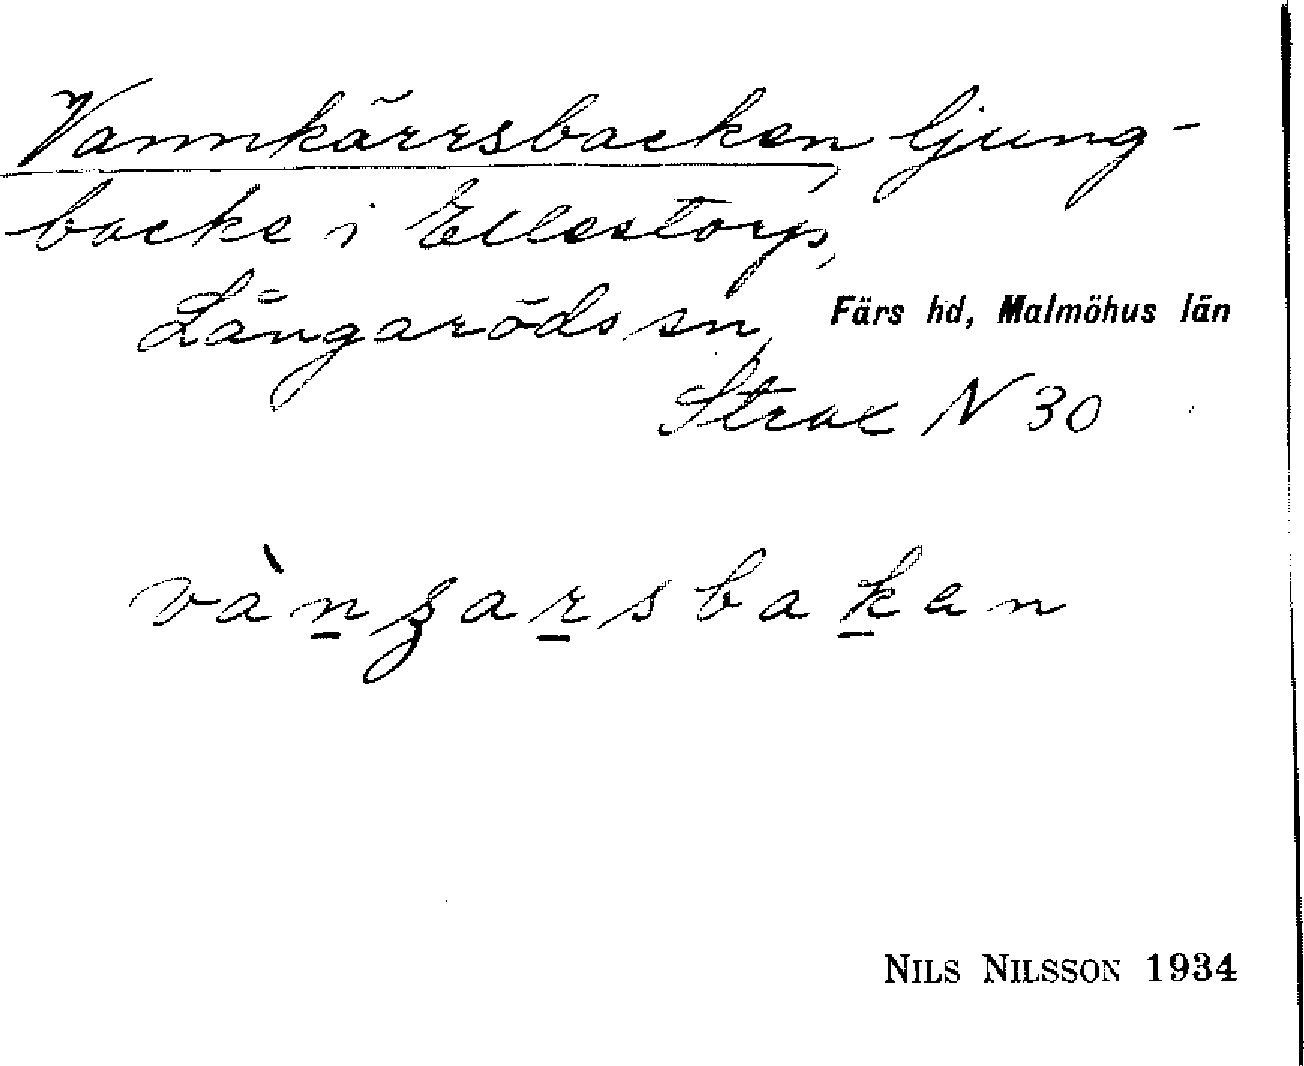 Vannkärrsbacken, ljung-
backe i Ellestorp,
Långaröds sn, Färs hd, Malmöhus län
N 30
NILS NILSSON 1934